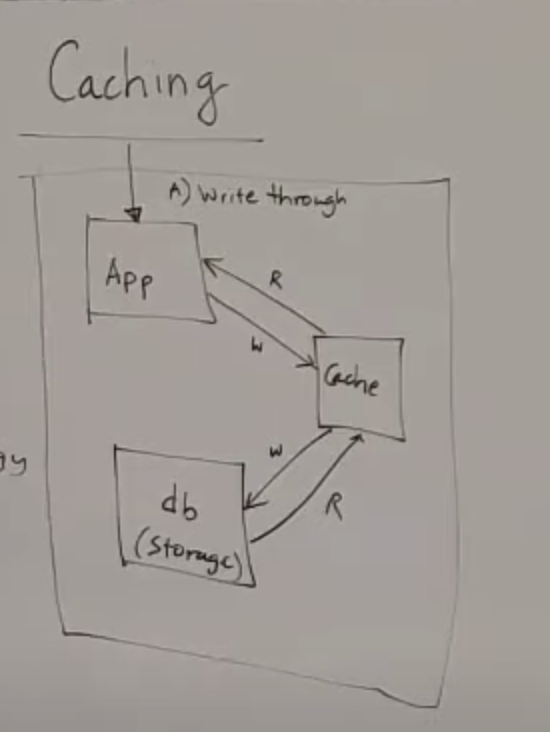 Caching
A) Write through
App
R
W
Cache
W
db
R
(Storage)